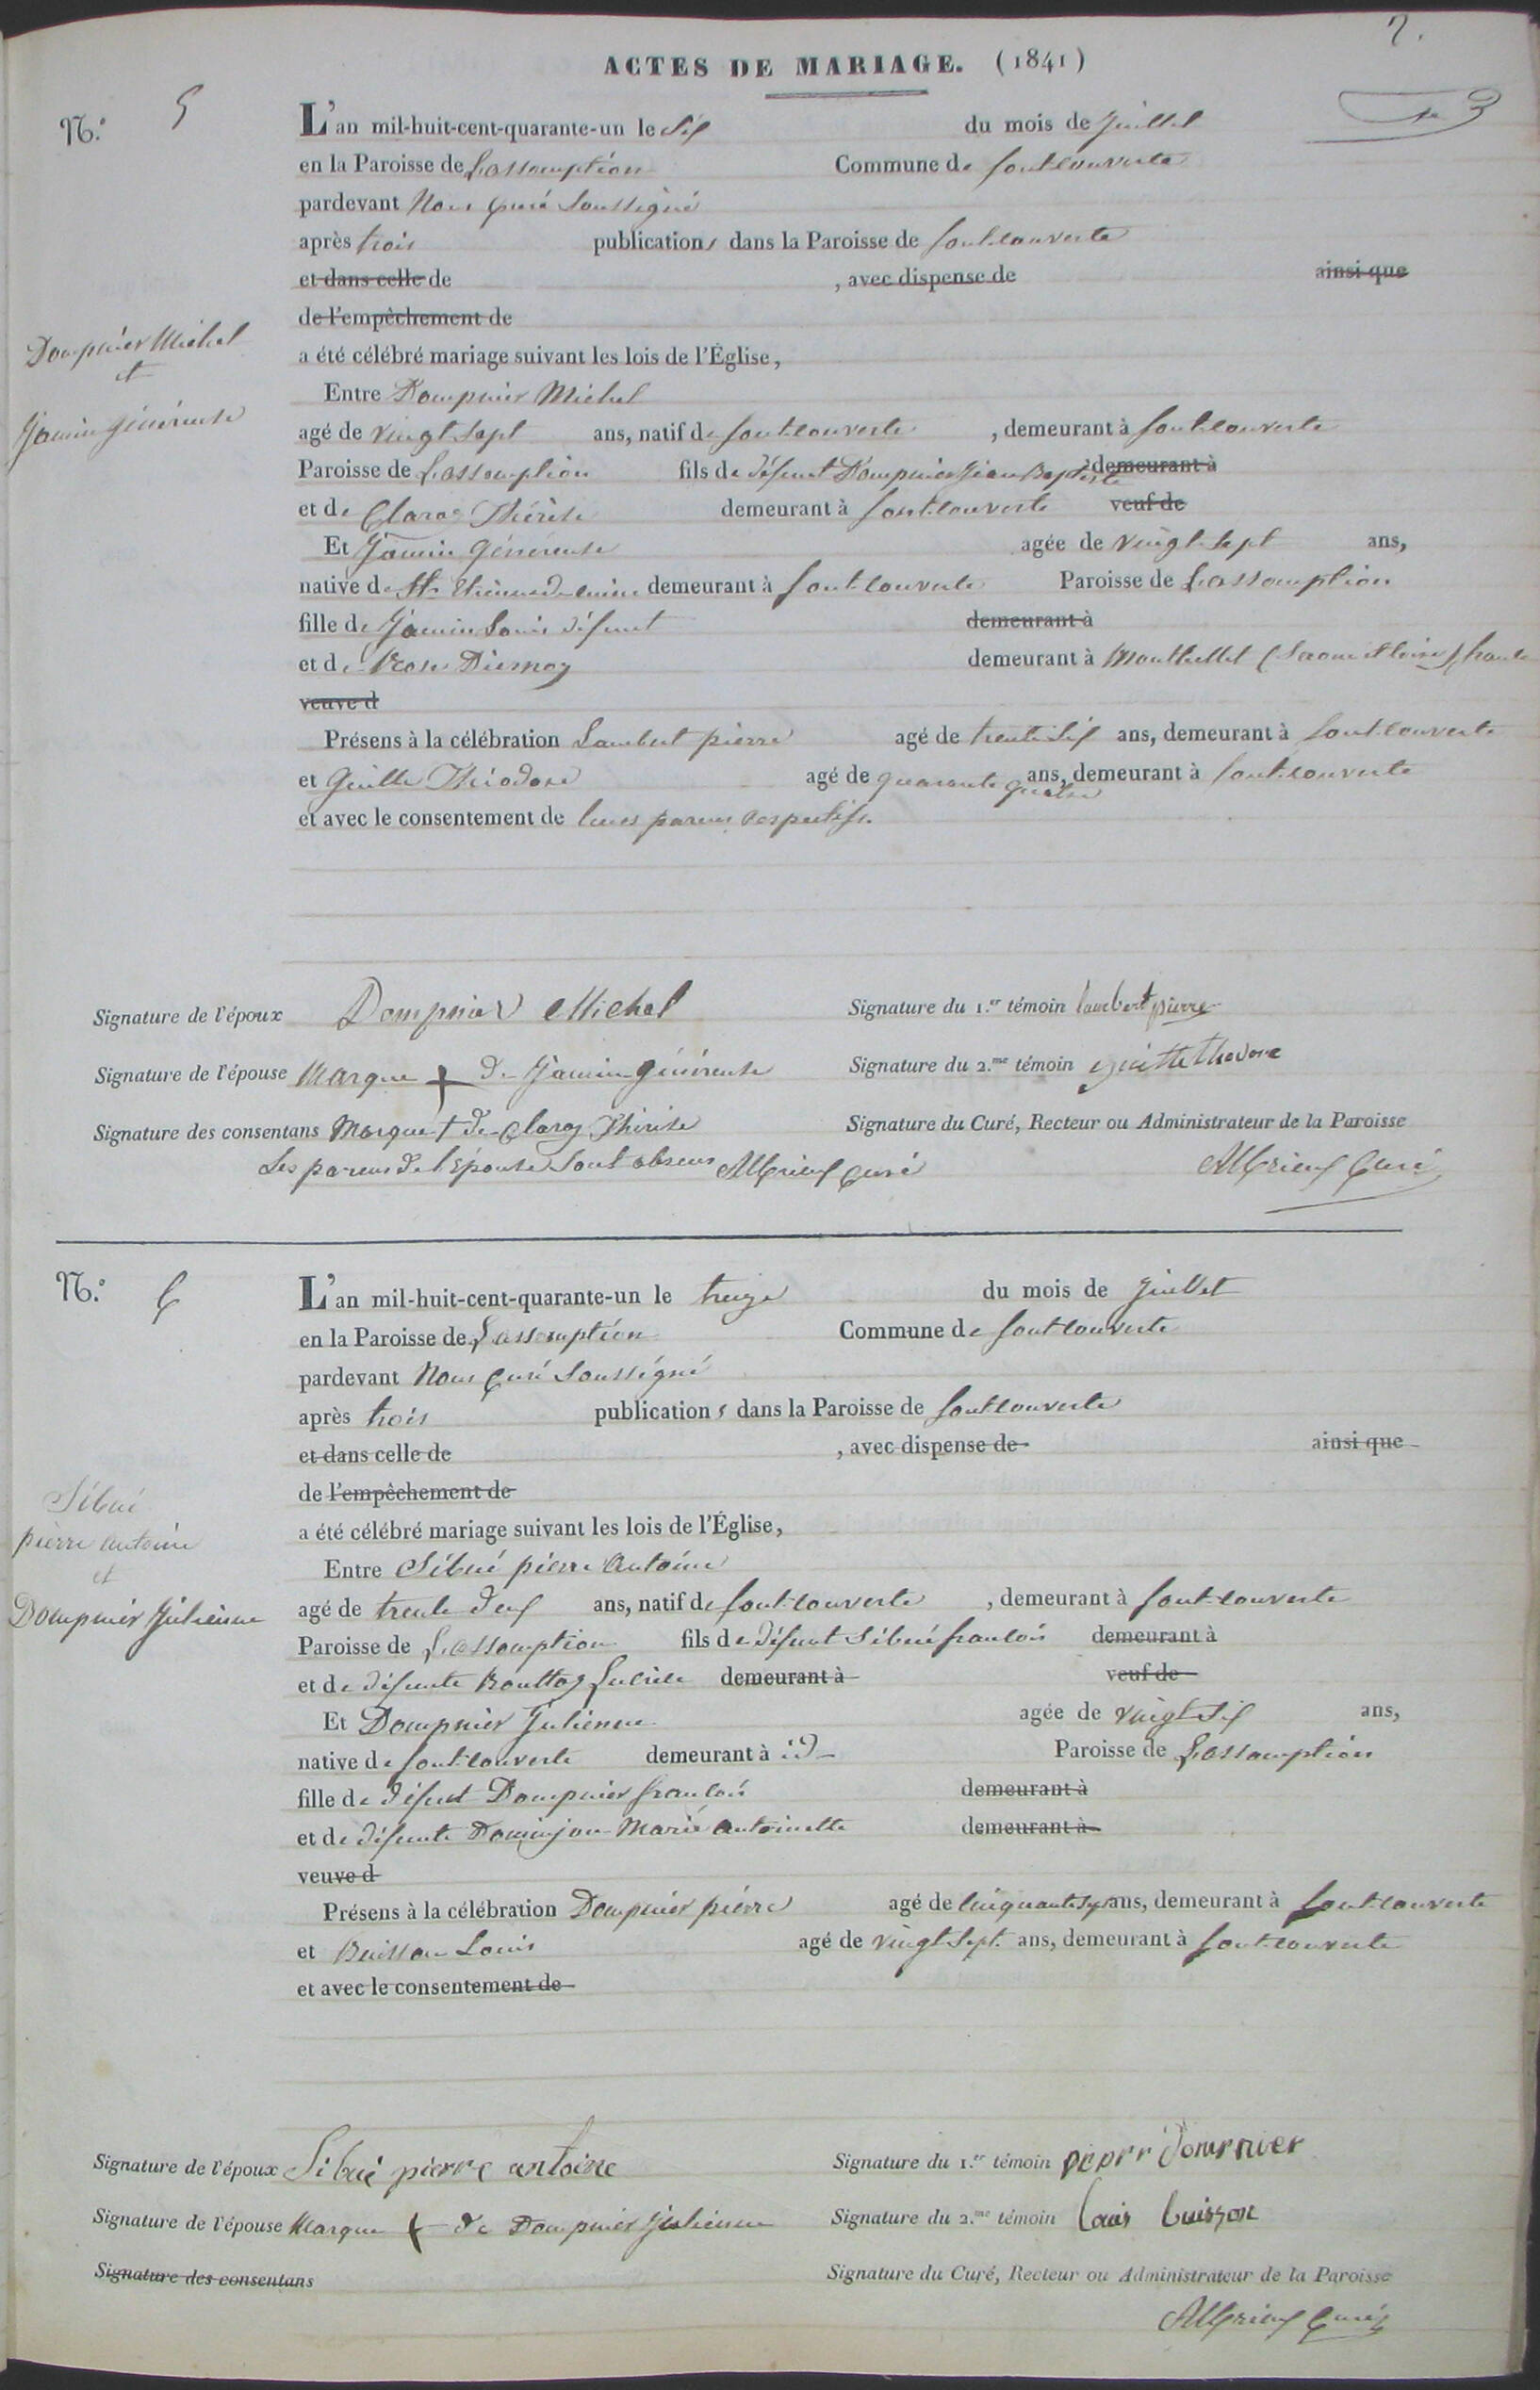 2.
ACTES DE MARIAGE. (1841)
3
N.º 5
L'an mil-huit-cent-quarante-un le Six du mois de Juillet
en la Paroisse de Lassomption Commune de fontcouverte
pardevant Nous Curé Soussigné
après trois publications dans la Paroisse de fontcouverte
et dans celle de , avec dispense de ainsi que
de l'empêchement de
Dompnier Michel
et
Jamin Généreuse
a été célébré mariage suivant les lois de l'Église,
Entre Dompnier Michel
agé de vingt Sept ans, natif de fontcouverte , demeurant à fontcouverte
Paroisse de Lassomption fils de défunt Dompnier Jean Baptiste demeurant à
et de Claraz Thérèse demeurant à fontcouverte veuf de
Et Jamin Généreuse agée de vingt Sept ans,
native de St. Etienne de cuine demeurant à fontcouverte Paroisse de Lassomption
fille de Jamin Louis défunt demeurant à
et de Rose Diernaz demeurant à Monthellet (Saone et loire)
veuve d
Présens à la célébration Lambert pierre agé de trente Six ans, demeurant à fontcouverte
et Guille Théodore agé de quarante quatre ans, demeurant à fontcouverte
et avec le consentement de leurs parens respectifs.
Signature de l'époux Dompnier Michel Signature du 1.er témoin lambert pierre
Signature de l'épouse Marque + de Jamin Généreuse Signature du 2.me témoin
Signature des consentans Marque + de Claraz Thérèse Signature du Curé, Recteur ou Administrateur de la Paroisse
Les parens de l'Epouse Sont absens Curé Curé
N.º 6
L'an mil-huit-cent-quarante-un le treize du mois de Juillet
en la Paroisse de Lassomption Commune de fontcouverte
pardevant Nous Curé Soussigné
après trois publications dans la Paroisse de fontcouverte
et dans celle de , avec dispense de ainsi que
de l'empêchement de
Sibué
pierre antoine
et
Dompnier Julienne
a été célébré mariage suivant les lois de l'Église,
Entre Sibué pierre Antoine
agé de trente deux ans, natif de fontcouverte , demeurant à fontcouverte
Paroisse de Lassomption fils de défunt Sibué francois demeurant à
et de défunte Bouttaz Lucrèce demeurant à veuf de
Et Dompnier Julienne agée de vingt Six ans,
native de fontcouverte demeurant à id Paroisse de Lassomption
fille de défunt Dompnier francois demeurant à
et de défunte Dominjon Marie antoinette demeurant à
veuve d
Présens à la célébration Dompnier pierre agé de cinquante Sept ans, demeurant à fontcouverte
et Buisson Louis agé de vingt Sept ans, demeurant à fontcouverte
et avec le consentement de
Signature de l'époux Sibué pierre antoine Signature du 1.er témoin
Signature de l'épouse Marque + de Dompnier Julienne Signature du 2.me témoin Louis buisson
Signature des consentans Signature du Curé, Recteur ou Administrateur de la Paroisse
Curé